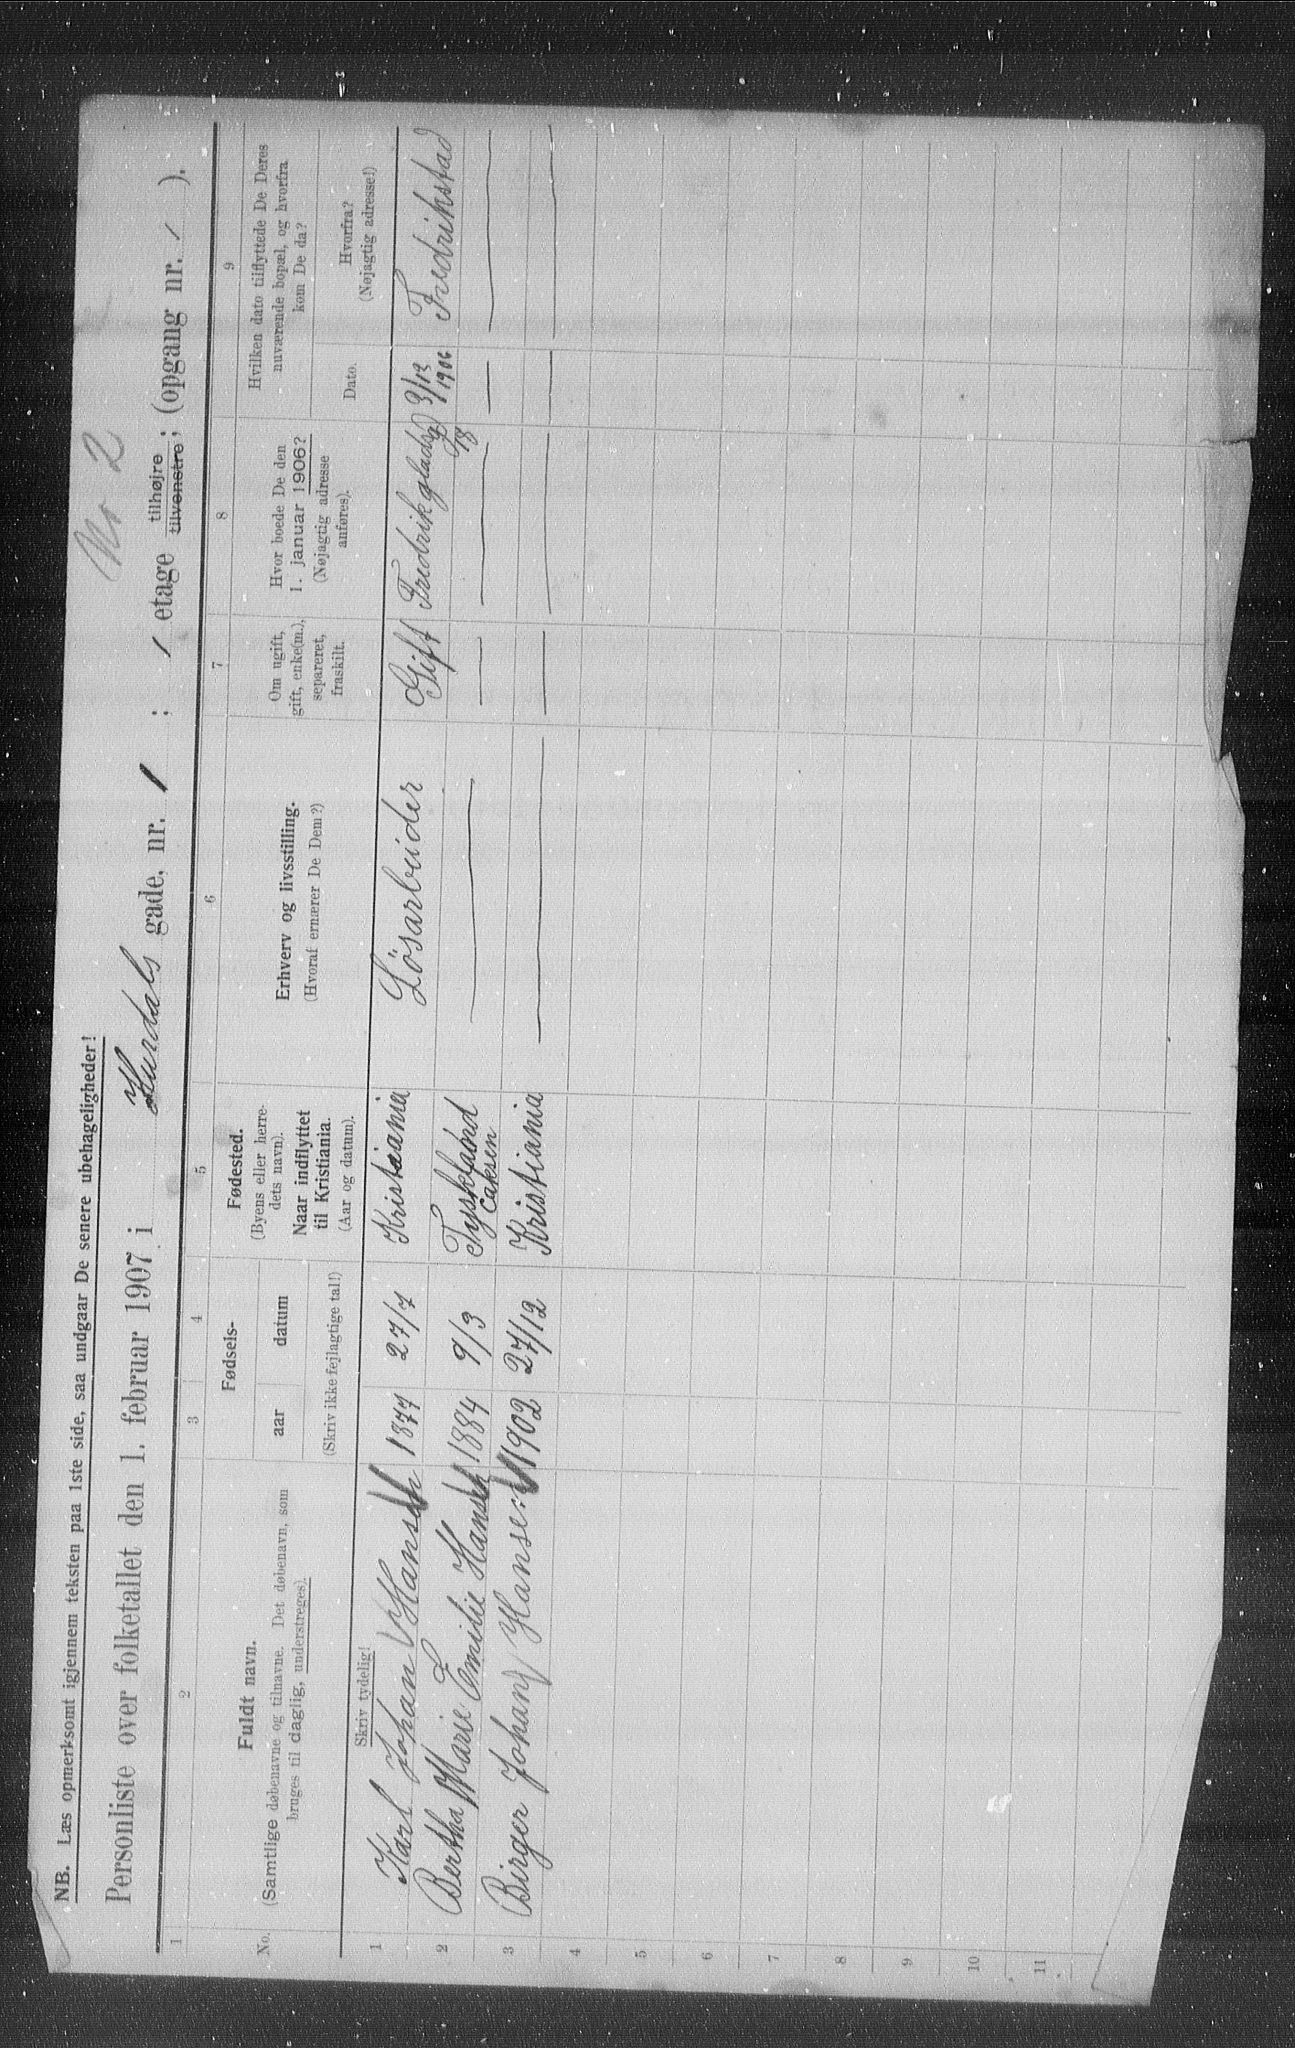 Nr 2
NB. Læs opmerksomt igjennem teksten paa 1ste side, saa undgaar De senere ubehageligheder!
Personliste over folketallet den 1. februar 1907 i Hurdals gade, nr. 1 ; 1 etage tilhøjre tilvenstre; (opgang nr. / ).
1 2 3 4 5 6 7 8 9
No.
Fuldt navn.
(Samtlige døbenavne og tilnavne. Det døbenavn, som
bruges til daglig, understreges).
Fødsels-
aar datum
(Skriv ikke fejlagtige tal!)
Fødested.
(Byens eller herre-
dets navn).
Naar indflyttet
til Kristiania.
(Aar og datum).
Erhverv og livsstilling.
(Hvoraf ernærer De Dem?)
Om ugift,
gift, enke(m.),
separeret,
fraskilt.
Hvor boede De den
1. januar 1906?
(Nøjagtig adresse
anføres).
Hvilken dato tilflyttede De Deres
nuværende bopæl, og hvorfra
kom De da?
Dato.
Hvorfra?
(Nøjagtig adresse!)
Skriv tydelig!
1 Karl Johan Hansen 1877 27/7 Kristiania Lösarbeider Gift 3/12 1906 Fredrikstad
2 Bertha Marie Emilie Hansen 1884 9/3 Tyskland — — — — —
3 Birger Johan Hansen 1902 27/12 Kristiania — — — — —
4
5
6
7
8
9
10
11